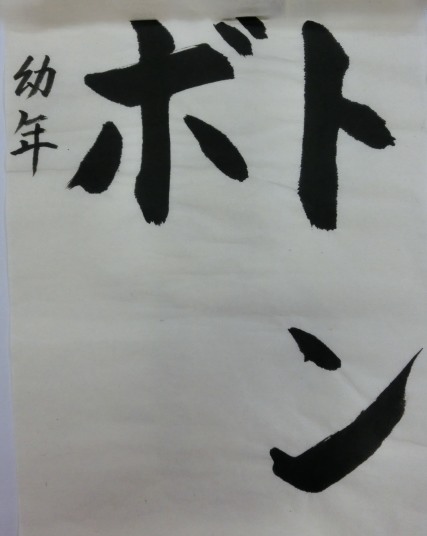 トン
ボ
幼年